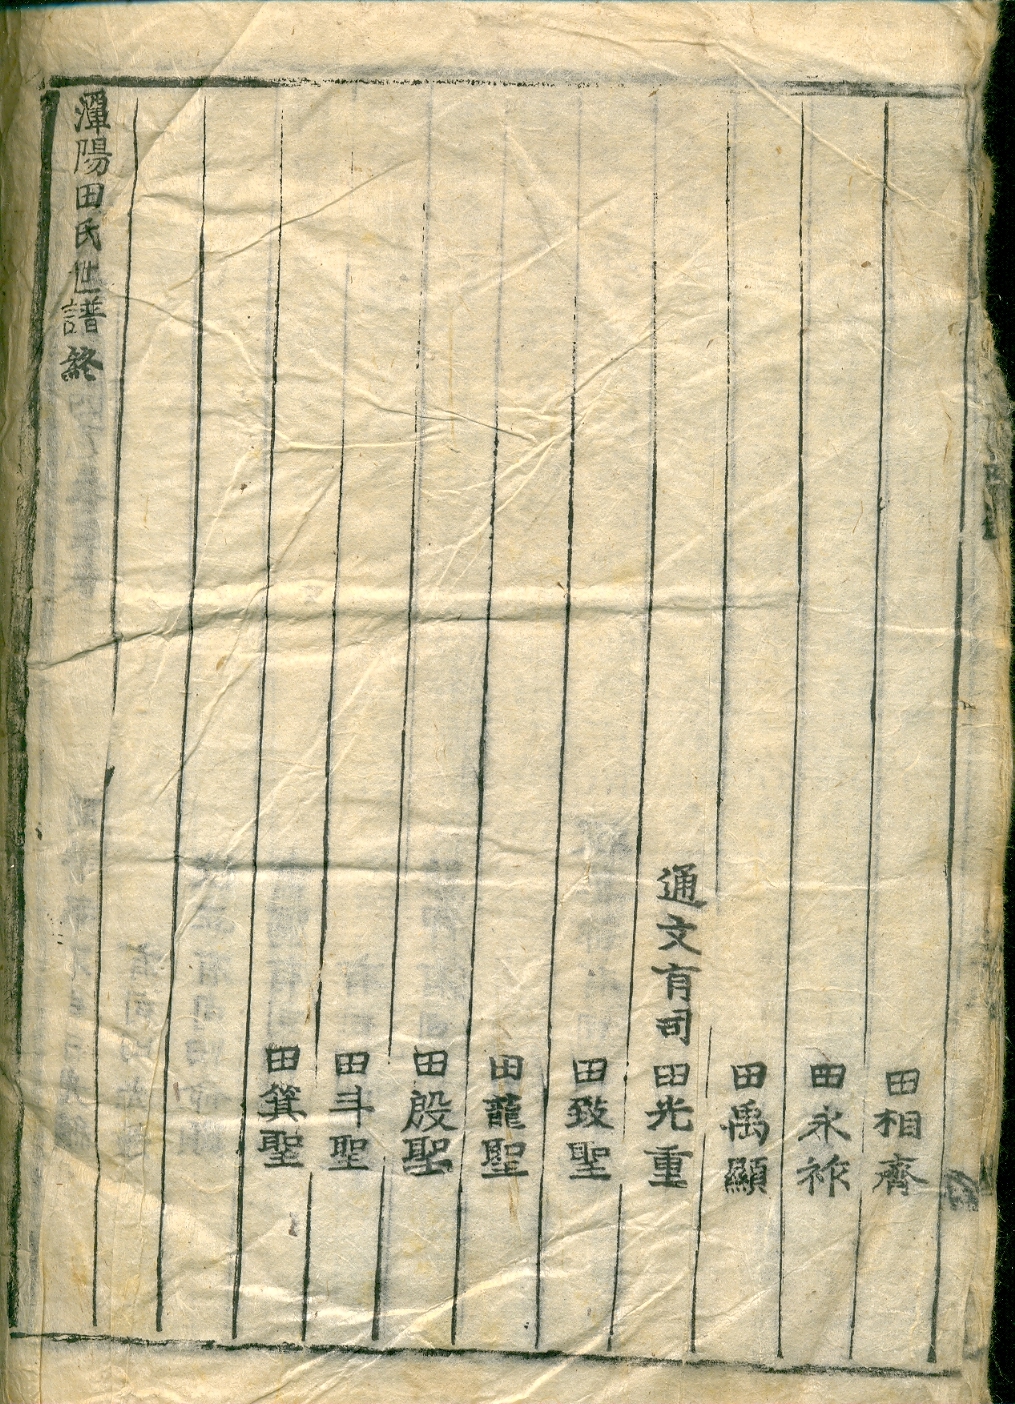 田相齊
田永祚
田禹顯
通文有司 田光重
田致聖
田龍聖
田殷聖
田斗聖
田箕聖
潭陽田氏世譜終